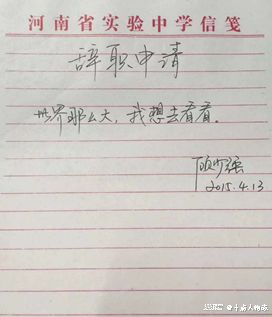 河南省实验中学信笺
辞职申请
世界那么大，我想去看看。
顾少强
2015.4.13